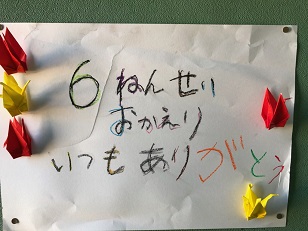 6ねんせい
おかえり
いつもありがとう